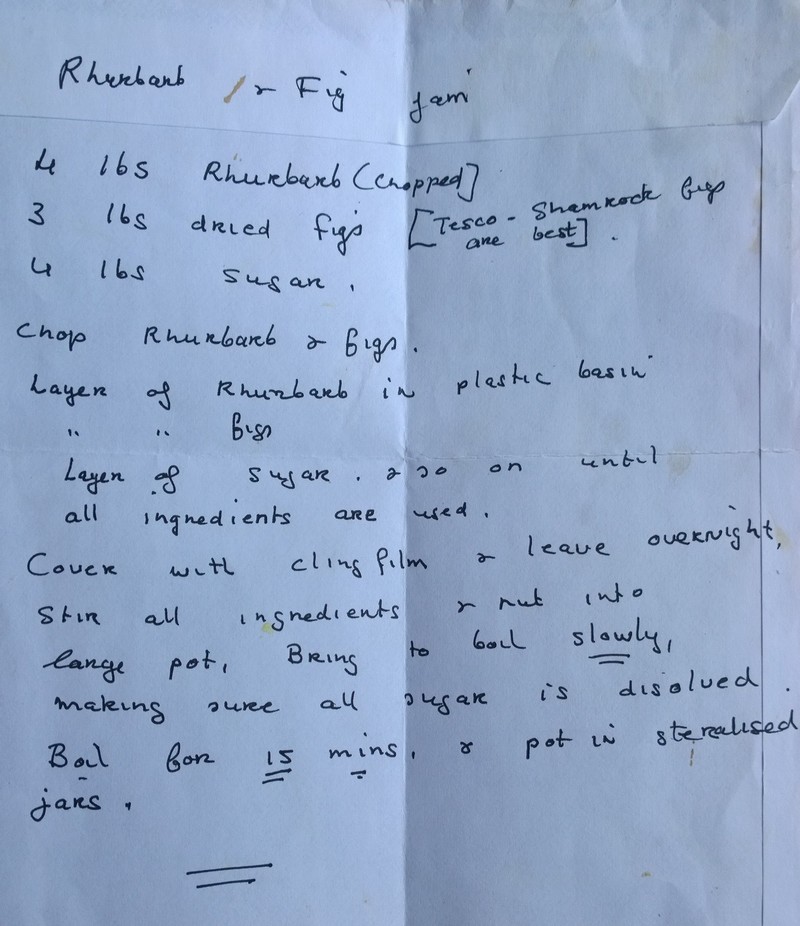 Rhurbarb & Fig Jam
4 lbs Rhurbarb (Chopped]
3 lbs dried figs [Tesco - Shamrock figs
are best].
4 lbs sugar.
Chop Rhurbarb & figs.
Layer of Rhurbarb in plastic basin
" " figs
Layer of sugar. & so on until
all ingredients are used.
Cover with cling film & leave overnight,
Stir all ingredients & put into
large pot, Bring to boil slowly,
making sure all sugar is disolved.
Boil for 15 mins. & pot in steralised
jars.